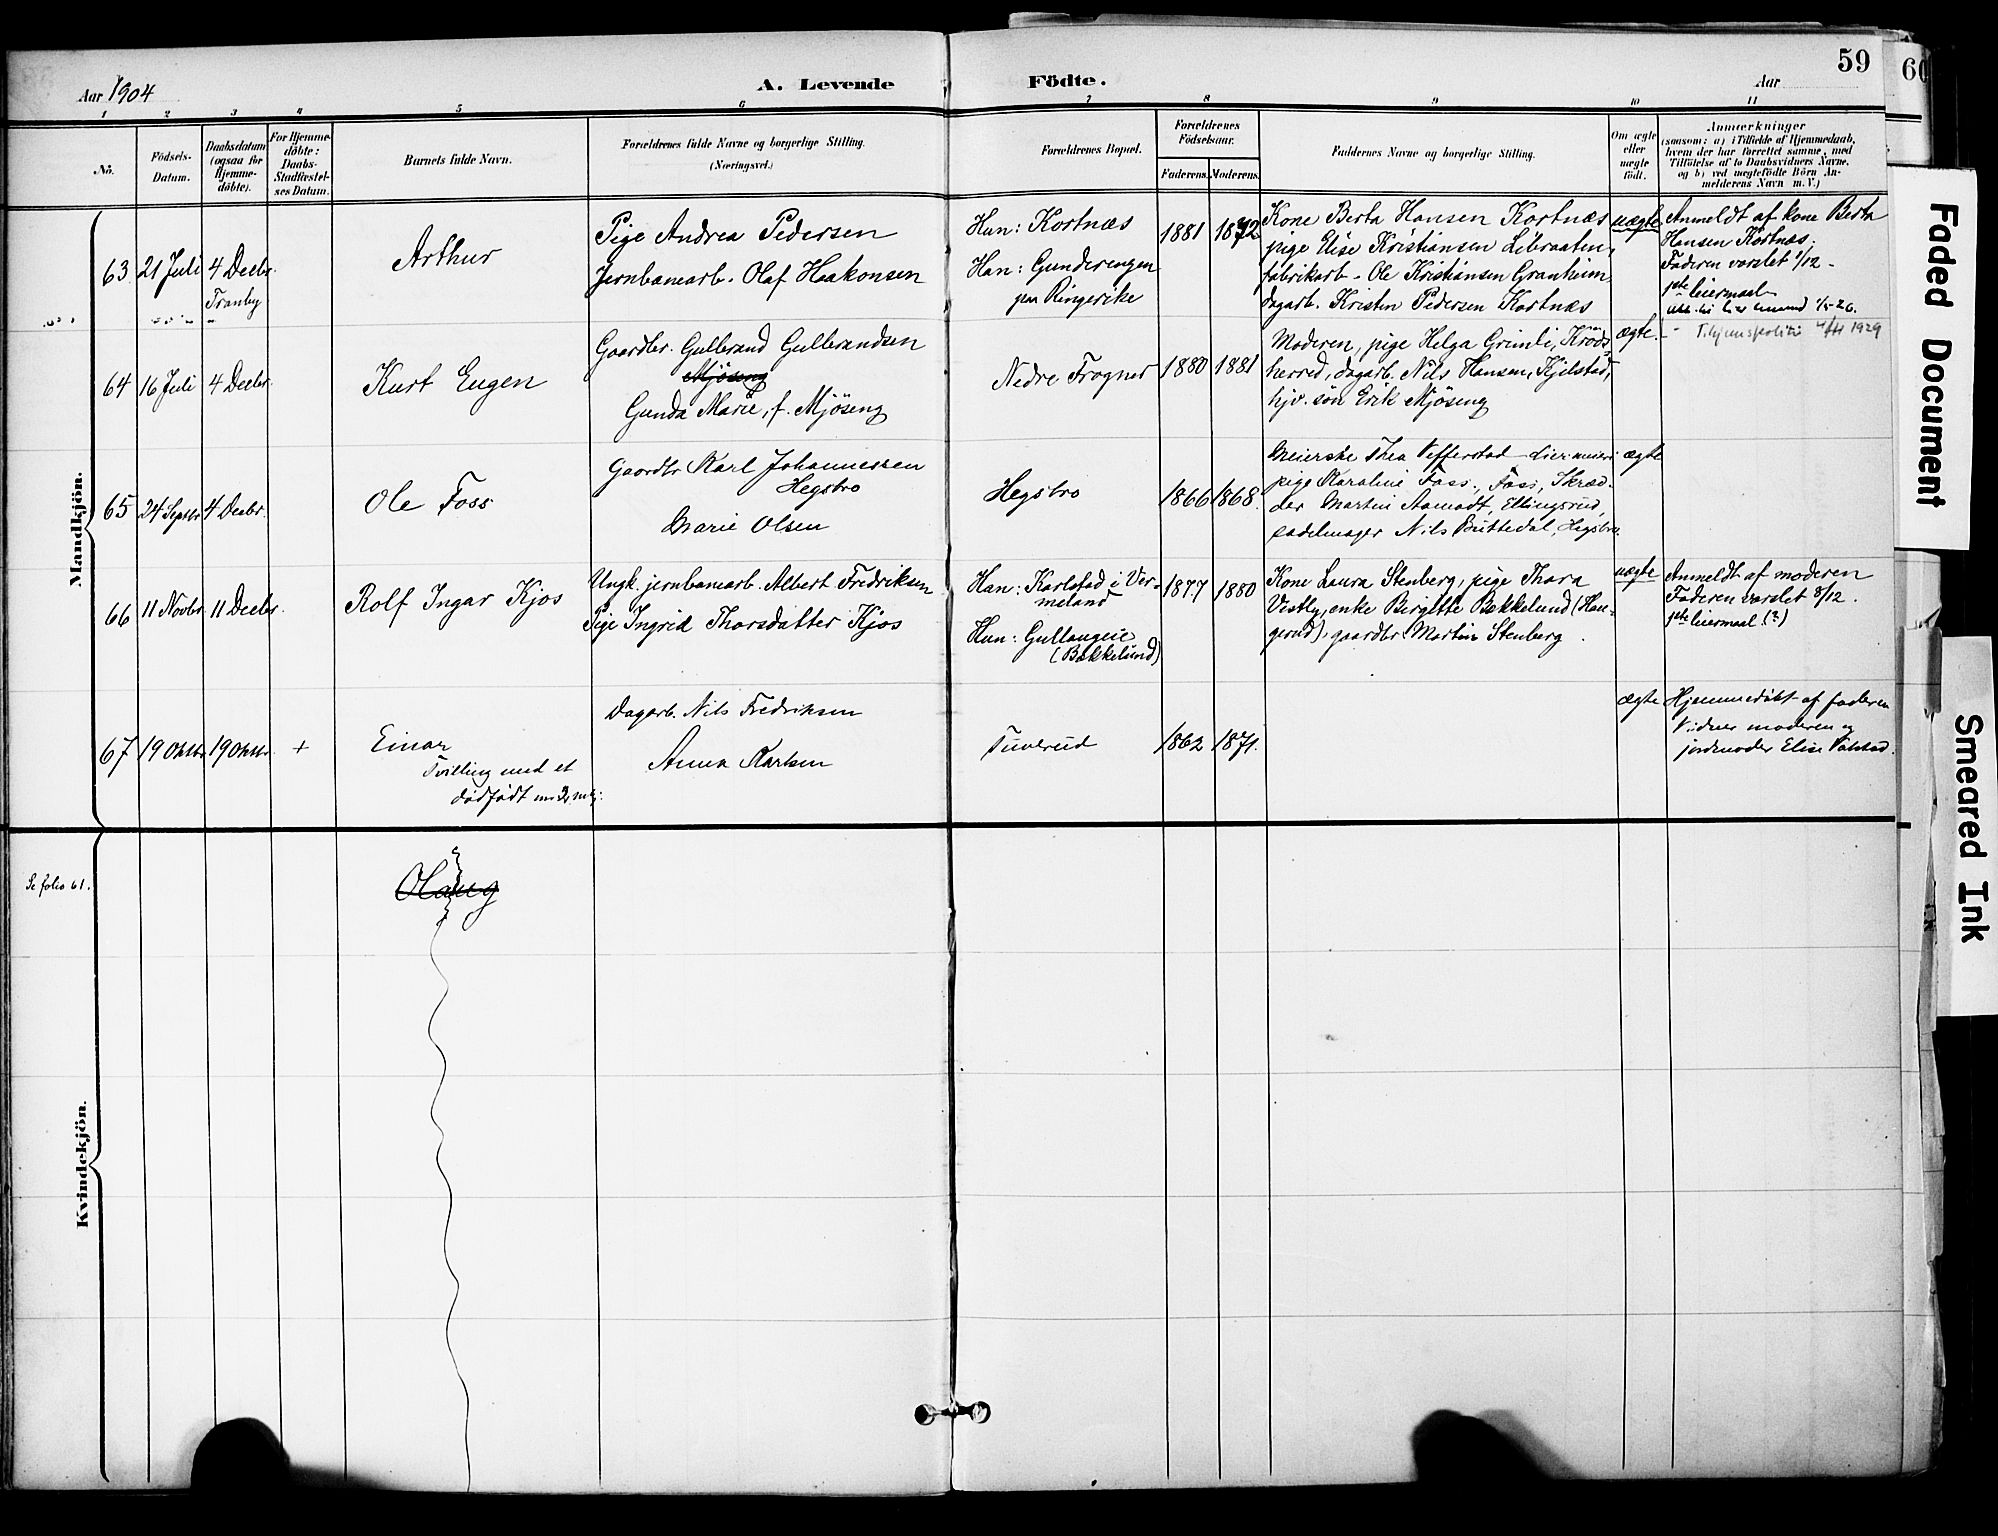 59
60
Aar 1904
A. Levende Födte.
Aar
1 2 3 4 5 6 7 8 9 10 11
No.
Födsels-Datum.
Daabsdatum (ogsaa for Hjemme-döbte).
For Hjemme-döbte: Daabs-Stadfæstel-ses Datum.
Barnets fulde Navn.
Forældrenes fulde Navne og borgerlige Stilling.
(Næringsvei.)
Forældrenes Bopæl.
Forældrenes Födselsaar.
Faderens. Moderens.
Faddernes Navne og borgerlige Stilling.
Om ægte eller uægte födt.
Anmærkninger
(saasom: a) i Tilfælde af Hjemmedaab,
hvem der har forrettet samme, med
Tilföielse af to Daabsvidners Navne,
og b) ved uægtefödte Börn An-
melderens Navn m. V.)
Mandkjön.
63 21 Juli 4 Decbr.
Tranby
Arthur
Pige Andrea Pedersen
Jernbanearb. Olaf Haakonsen
Hun: Kortnæs
Han: Gunderengen
paa Ringerike
1881 1872
Kone Berta Hansen Kortnæs
pige Elise Kristiansen Libraaten,
fabrikarb. Ole Kristiansen Granheim
dagarb. Kristen Pedersen Kortnæs
uægte
Anmeldt af kone Berta
Hansen Kortnæs.
Faderen varslet 1/12 -
1ste leiermaal
64 16 Juli 4 Decbr.
Kurt Eugen
Gaardbr. Gulbrand Gulbrandsen
Mjöseng
Gunda Marie, f. Mjöseng
Nedre Frogner
1880 1881
Moderen, pige Helga Grimli, Kröds-
herred, dagarb. Nils Hansen, Kjelstad,
hjv. søn Erik Mjöseng
ægte.
1929
65 24 Septbr 4 Decbr.
Ole Foss
Gaardbr Karl Johannessen
Hegsbro
Marie Olsen
Hegsbro
1866 1868.
Meierske Thea Vefferstad Lier meieri
pige Karoline Foss, Foss, Skræd-
der Martin Aamodt, Ellingsrud,
sadelmager Nils Bruttedal, Hegsbro.
ægte
66 11 Novbr 11 Decbr.
Rolf Ingar Kjos
Ungk. jernbanearb. Albert Fredriksen
Pige Ingrid Thorsdatter Kjos
Han: Karlstad i Ver-
meland
Hun: Gullaugeie
(Bækkelund)
1877 1880
Kone Laura Stenberg, pige Thora
Vestby, enke Birgitte Bækkelund (Hau-
gerud), gaardbr Martin Stenberg.
uægte
Anmeldt af moderen
Faderen varslet 8/12.
1ste leiermaal (?)
67 19 Oktbr 19 Oktbr +
Einar
Tvilling med et
dødfødt
Dagarb. Nils Fredriksen
Anna Karlsen
Tuverud
1862 1871.
ægte
Hjemmedøbt af faderen
Vidner moderen og
jordmoder Elise Valstad.
Kvindekjön.
Se folio 61.
Olaug
Faded Document
Smeared Ink